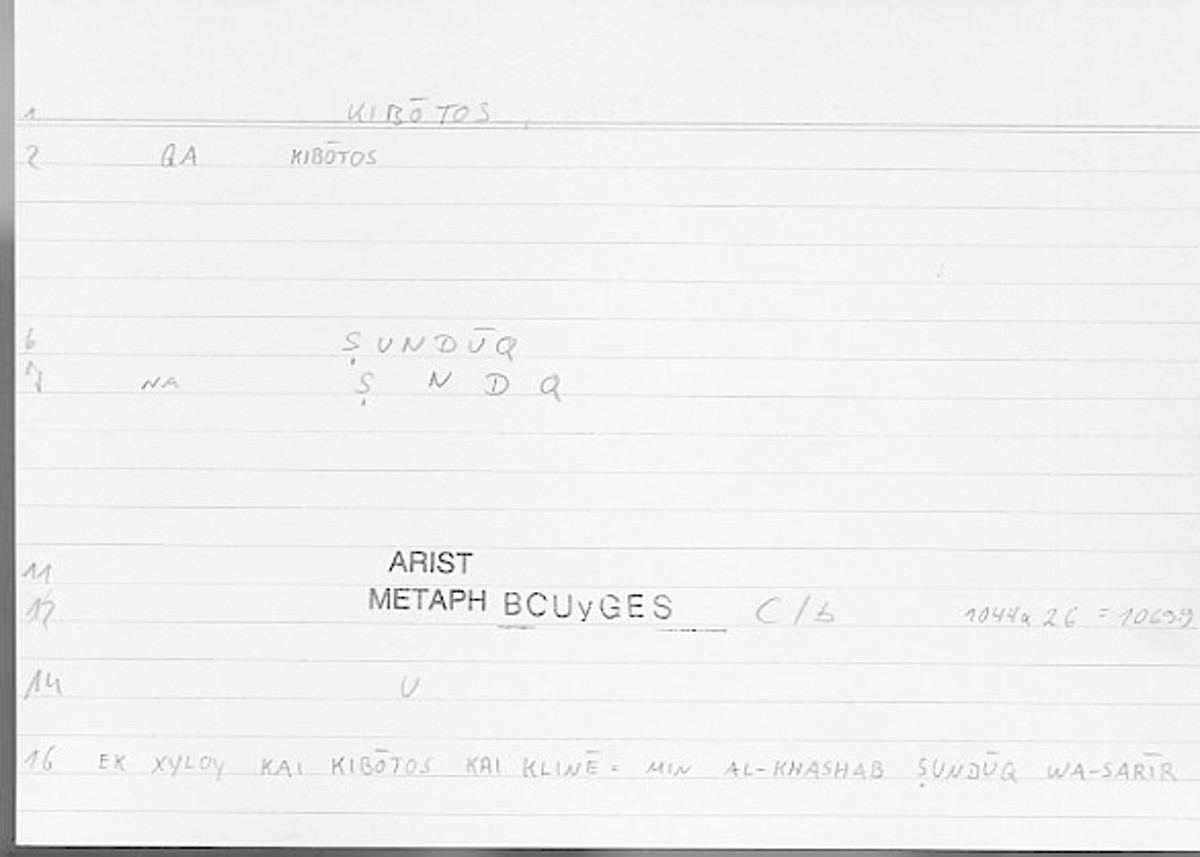 1 KIBŌTOS
2 QA KIBŌTOS
6 ṢUNDŪQ
7 NA Ṣ N D Q
11 ARIST
12 METAPH BCUyGES C/b 1044a 26 = 10699
14 U
16 EK XYLOY KAI KIBŌTOS KAI KLINĒ = MIN AL-KHASHAB ṢUNDŪQ WA-SARĪR